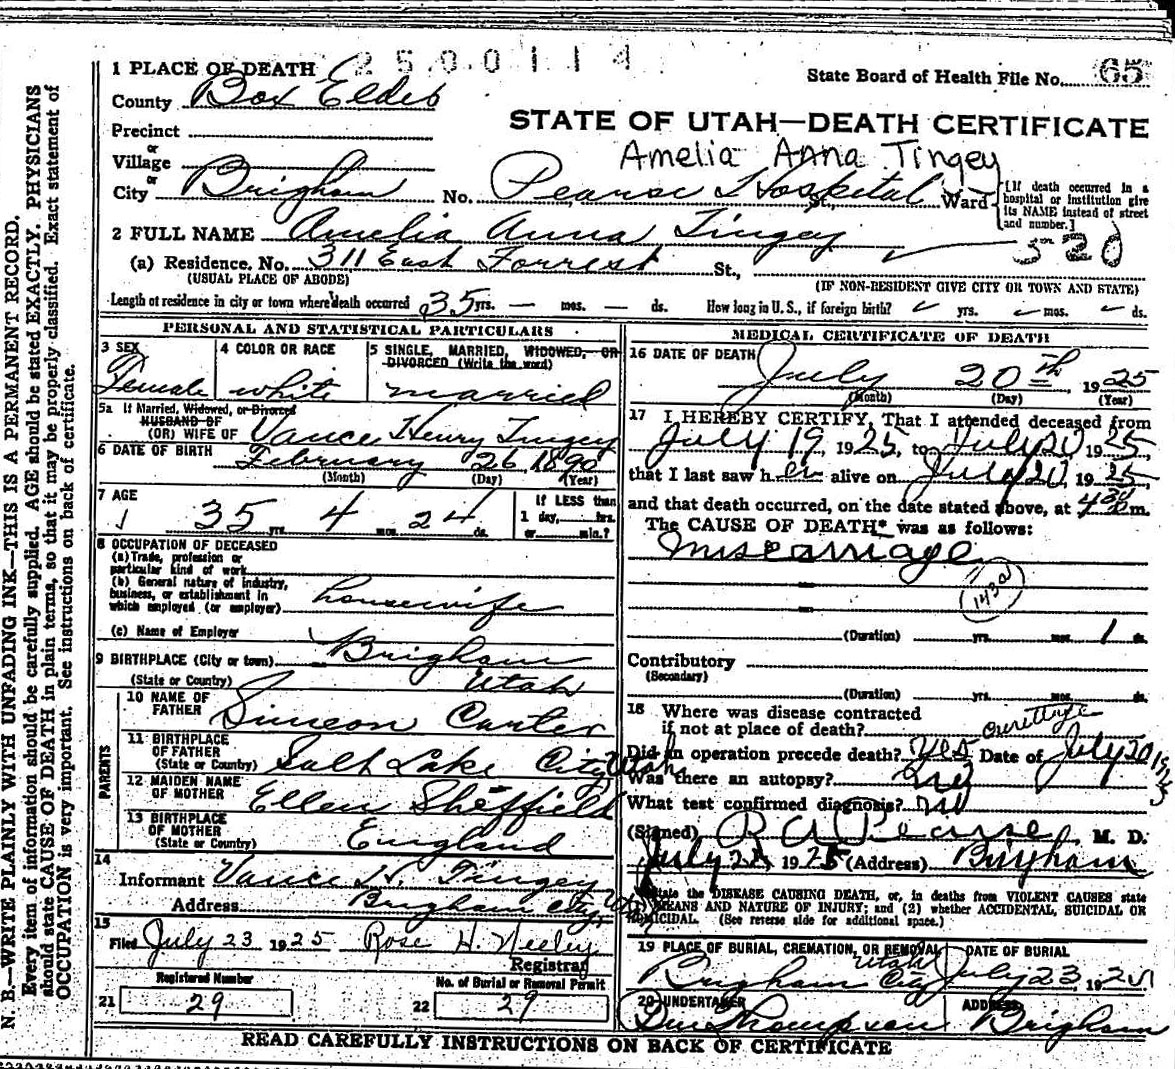 2500114
1 PLACE OF DEATH
State Board of Health File No. 65
County Box Elder
STATE OF UTAH—DEATH CERTIFICATE
Precinct
or
Amelia Anna Tingey
Village
or
City Brigham No. Pearse Hospital St., Ward
[If death occurred in a
hospital or institution give
its NAME instead of street
and number.]
2 FULL NAME Amelia Anna Tingey
520
(a) Residence. No. 311 East Forrest St.,
(USUAL PLACE OF ABODE)
(IF NON-RESIDENT GIVE CITY OR TOWN AND STATE)
Length of residence in city or town where death occurred 35 yrs. — mos. — ds. How long in U. S., if foreign birth? yrs. mos. ds.
PERSONAL AND STATISTICAL PARTICULARS
3 SEX
Female
4 COLOR OR RACE
white
5 SINGLE, MARRIED, WIDOWED, OR
DIVORCED (Write the word)
married
5a If Married, Widowed, or Divorced
HUSBAND OF
(OR) WIFE OF Vance Henry Tingey
6 DATE OF BIRTH February 26, 1890
(Month) (Day) (Year)
7 AGE
35 yrs. 4 mos. 24 ds.
If LESS than
1 day, hrs.
or min.?
8 OCCUPATION OF DECEASED
(a) Trade, profession or
particular kind of work
(b) General nature of industry,
business, or establishment in
which employed (or employer) housewife
(c) Name of Employer
9 BIRTHPLACE (City or town) Brigham
(State or Country) Utah
PARENTS
10 NAME OF
FATHER Simeon Carter
11 BIRTHPLACE
OF FATHER
(State or Country) Salt Lake City Utah
12 MAIDEN NAME
OF MOTHER Ellen Sheffield
13 BIRTHPLACE
OF MOTHER
(State or Country) England
14
Informant Vance H. Tingey
Address Brigham City,
15
Filed July 23 1925 Rose H. Neeley
Registrar
Registered Number
21 29
No. of Burial or Removal Permit
22 29
MEDICAL CERTIFICATE OF DEATH
16 DATE OF DEATH
July 20th, 1925
(Month) (Day) (Year)
17 I HEREBY CERTIFY, That I attended deceased from
July 19, 1925, to July 20, 1925,
that I last saw her alive on July 20, 1925,
and that death occurred, on the date stated above, at 430 m.
The CAUSE OF DEATH* was as follows:
Miscarriage
143a
(Duration) yrs. mos. 1 ds.
Contributory
(Secondary)
(Duration) yrs. mos. ds.
18 Where was disease contracted
if not at place of death?
Curettage
Did an operation precede death? Yes Date of July 20 1925
Was there an autopsy? no
What test confirmed diagnosis? no
(Signed) R A Pearse M. D.
July 1925 (Address) Brigham
State the DISEASE CAUSING DEATH, or, in deaths from VIOLENT CAUSES state
(1) MEANS AND NATURE OF INJURY; and (2) whether ACCIDENTAL, SUICIDAL OR
HOMICIDAL. (See reverse side for additional space.)
19 PLACE OF BURIAL, CREMATION, OR REMOVAL
Brigham City Utah
DATE OF BURIAL
July 23, 1925
20 UNDERTAKER
Thompson
ADDRESS
Brigham
READ CAREFULLY INSTRUCTIONS ON BACK OF CERTIFICATE
N. B.—WRITE PLAINLY WITH UNFADING INK—THIS IS A PERMANENT RECORD.
Every item of information should be carefully supplied. AGE should be stated EXACTLY. PHYSICIANS
should state CAUSE OF DEATH in plain terms, so that it may be properly classified. Exact statement of
OCCUPATION is very important. See instructions on back of certificate.